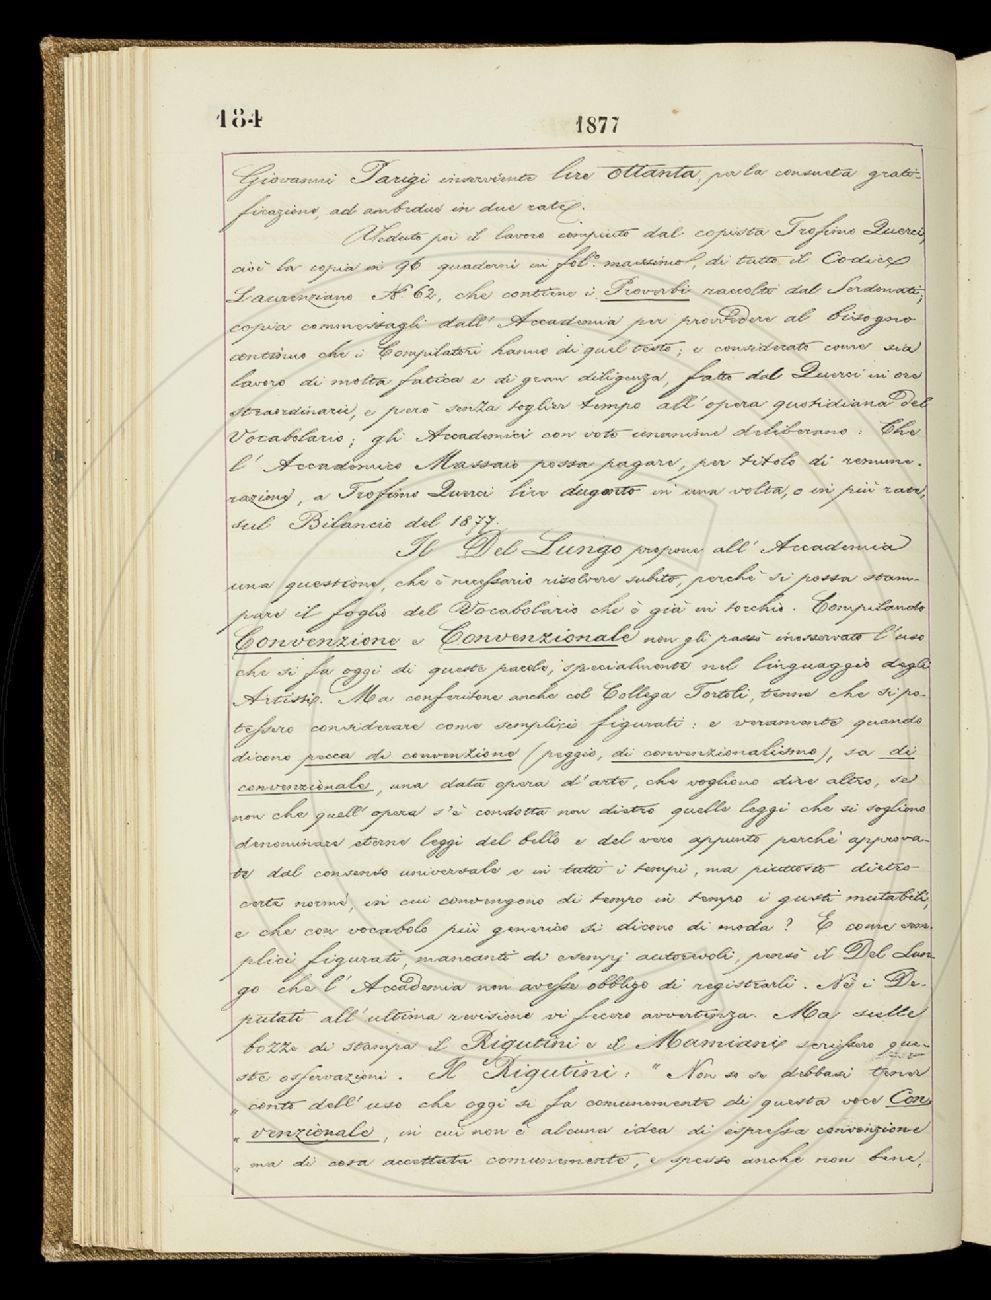 184
1877
Giovanni Parigi inserviente lire ottanta, per la consueta grati-
ficazione, ad ambedue in due rate.
Veduto poi il lavoro compiuto dal copista Trofimo Querci,
cioè la copia in 96 quaderni in fol.º massimo, di tutto il Codice
Laurenziano N.º 62, che contiene i Proverbi raccolti dal Serdonati;
copia commessagli dall' Accademia per provvedere al bisogno
continuo che i Compilatori hanno di quel testo; e considerato come sia
lavoro di molta fatica e di gran diligenza, fatto dal Querci in ore
straordinarie, e però senza toglier tempo all' opera quotidiana del
Vocabolario; gli Accademici con voto unanime deliberano: Che
l' Accademico Massaio possa pagare, per titolo di remune-
razione, a Trofimo Querci lire dugento in una volta, o in più rate,
sul Bilancio del 1877.
Il Del Lungo propone all' Accademia
una questione, che è necessario risolvere subito, perchè si possa stam-
pare il foglio del Vocabolario che è già in torchio. Compilando
Convenzione e Convenzionale non gli passò inosservato l' uso
che si fa oggi di queste parole, specialmente nel linguaggio degli
Artisti. Ma conferitone anche col Collega Tortoli, tenne che si po-
tessero considerare come semplici figurati: e veramente quando
dicono pecca di convenzione (peggio, di convenzionalismo), sa di
convenzionale, una data opera d' arte, che vogliono dire altro, se
non che quell' opera s' è condotta non dietro quelle leggi che si sogliono
denominare eterne leggi del bello e del vero appunto perchè approva-
te dal consenso universale e in tutti i tempi, ma piuttosto dietro
certe norme, in cui convengono di tempo in tempo i gusti mutabili,
e che con vocabolo più generico si dicono di moda? E come sem-
plici figurati, mancanti di esempj autorevoli, pensò il Del Lun-
go che l' Accademia non avesse obbligo di registrarli. Nè i De-
putati all' ultima revisione vi fecero avvertenza. Ma sulle
bozze di stampa il Rigutini e il Mamiani scrissero que-
ste osservazioni. Il Rigutini: " Non so se debbasi tener
" conto dell' uso che oggi si fa comunemente di questa voce Con
" venzionale, in cui non è alcuna idea di espressa convenzione
" ma di cosa accettata comunemente, e spesso anche non bene,